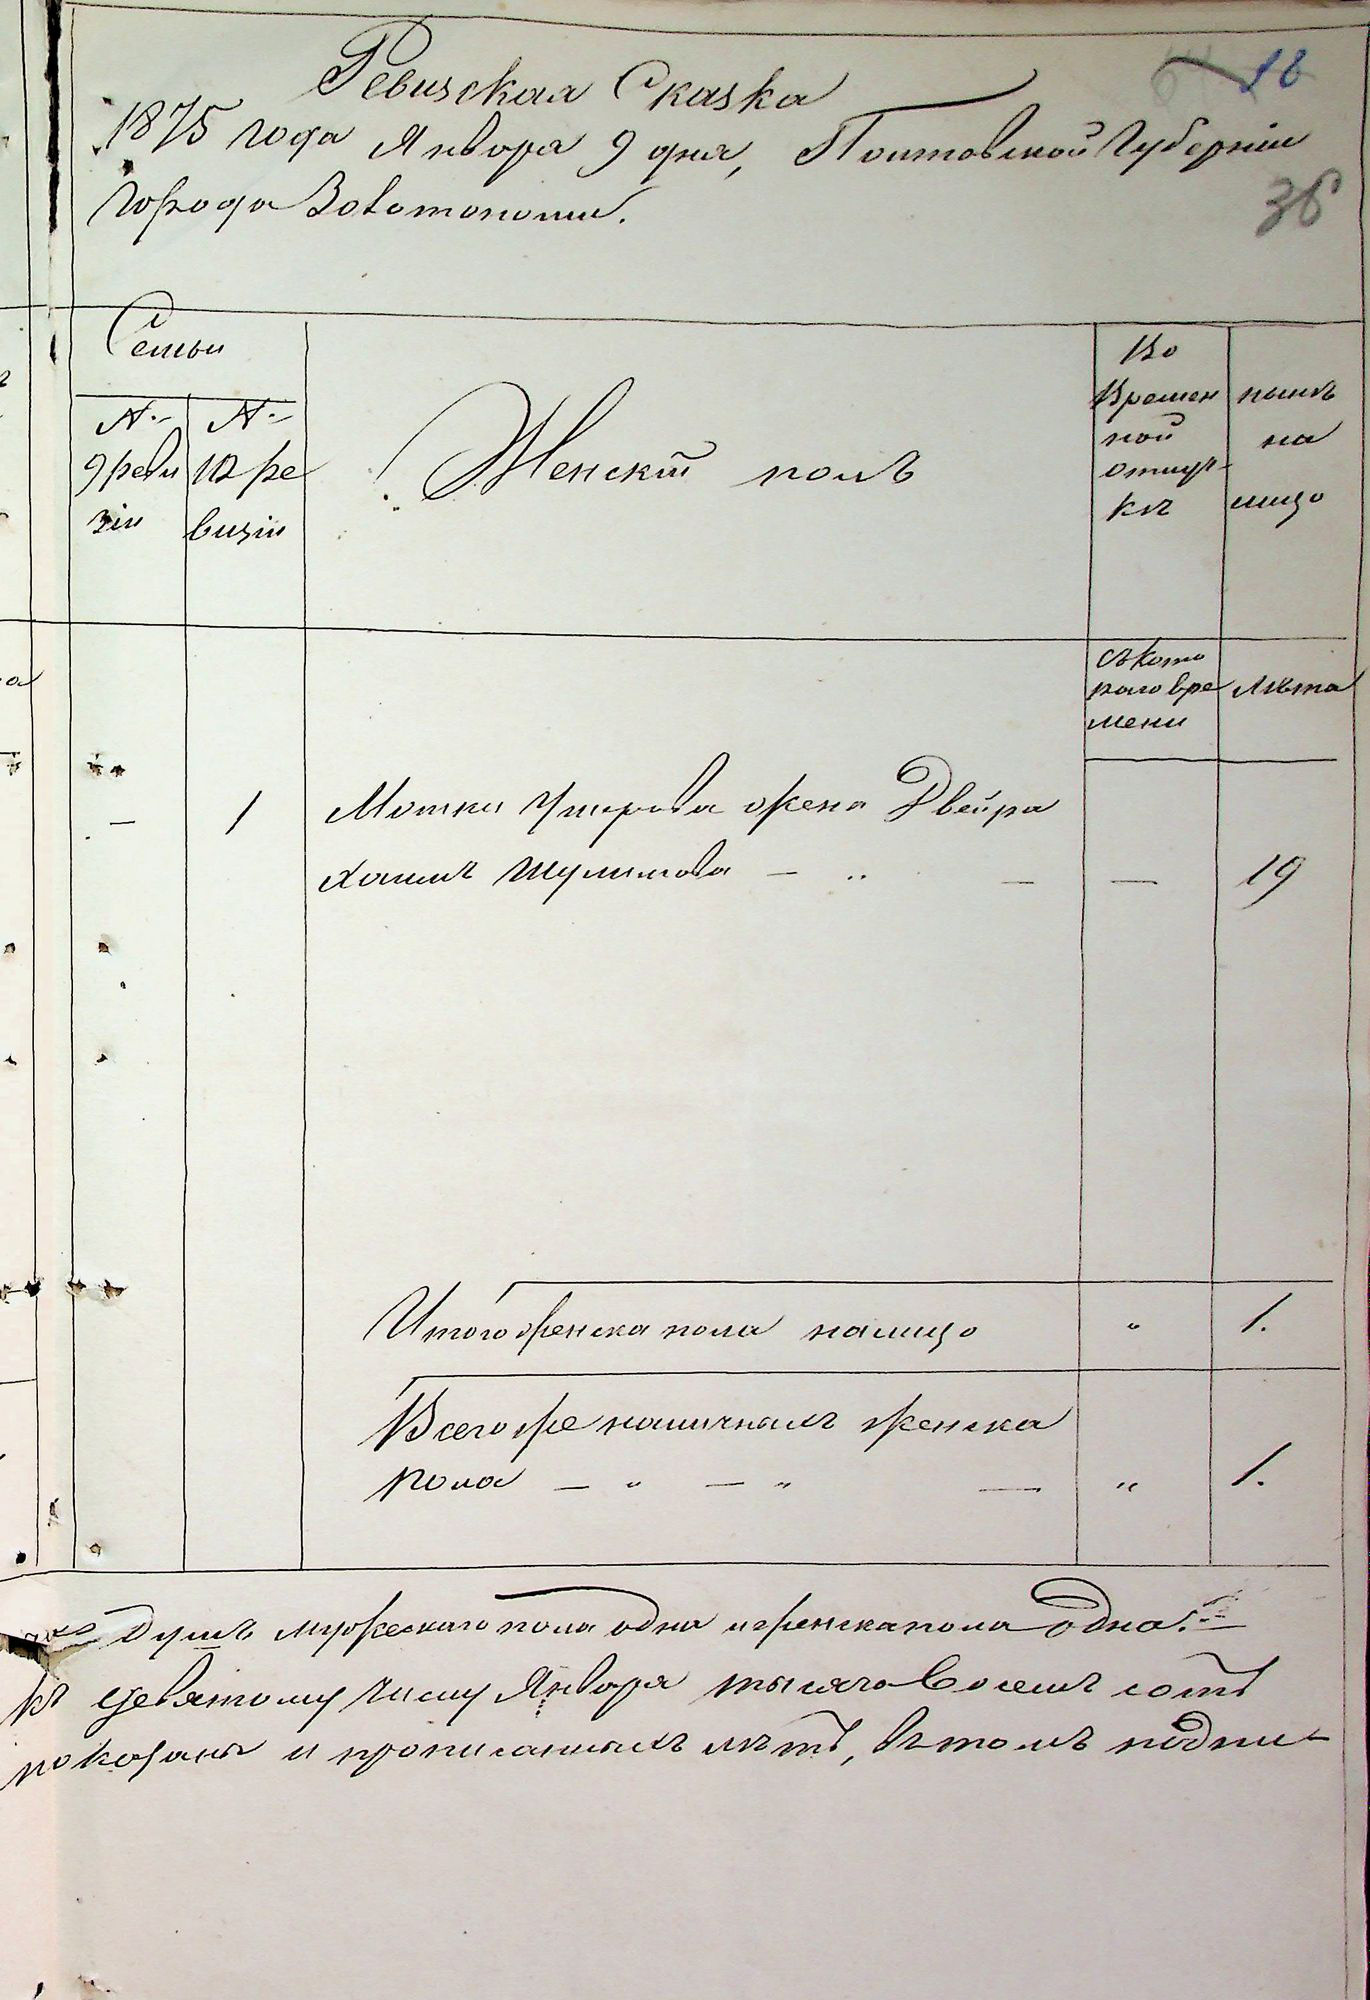 18
Ревизская Сказка
1875 года Января 9 дня, Полтавской Губерніи
города Золотоноши.
36
Семьи
№ 9 ревизіи
№ 10 ревизіи
Женскій полъ
Во временной отлучкѣ
нынѣ на лицо
съ котораго времени
Лѣта
— 1 Мошки Умерова жена Двейра
Хаимъ Шулимова — „ — — 19
Итого женска пола налицо „ 1.
Всего же наличныхъ женска
пола — „ — „ — „ 1.
Душъ мужескаго пола одна и женска пола одна.
къ девятому числу Января тысяча Восемь сотъ
показаны и прописанныхъ лѣтъ, въ томъ подпи-